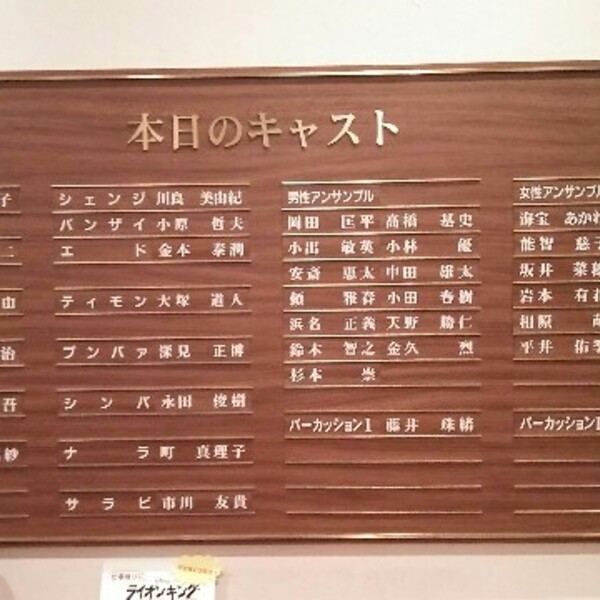 本日のキャスト
子
二
由
治
吾
紗
シェンジ 川良 美由紀
バンザイ 小原 哲夫
エド 金本 泰潤
ティモン 大塚 道人
プンバァ 深見 正博
シンバ 永田 俊樹
ナラ 町 真理子
サラビ 市川 友貴
男性アンサンブル
岡田 匡平 高橋 基史
小出 敏英 小林 優
安斎 恵太 中田 雄太
頼 雅春 小田 春樹
浜名 正義 天野 勝仁
鈴木 智之 金久 烈
杉本 崇
パーカッションⅠ 藤井 珠緒
女性アンサンブル
海宝 あかね
能智 慈子
坂井 菜穂
岩本 有花
相原 萌
平井 佑季
パーカッション
ライオンキング